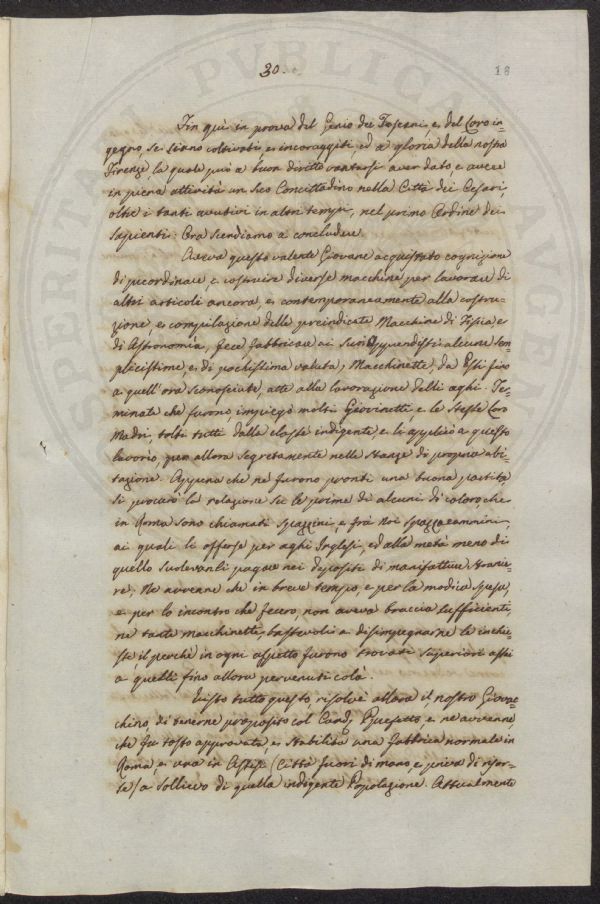 30.
18
Fin quì in prova del Genio dei Toscani, e del Loro in=
gegno se siano coltivati, e incoraggiti, ed a gloria della nostra
Firenze, la quale può a buon diritto vantarsi aver dato, e avere
in piena attività un suo Concittadino nella Città dei Cesari,
oltre i tanti avutivi in altri tempi, nel primo Ordine dei
Sapienti: Ora scendiamo a concludere.
Aveva questo valente Giovane acquistato cognizione
di precordinare, e costruire diverse macchine per lavorare di
altri articoli ancora, e contemporaneamente alla costru=
zione, e compilazione delle preindicate Macchine di Fisica, e
di Astronomia, fece fabbricare ai suoi Apprendisti alcune sem=
plicissime, e di pochissima valuta, Macchinette, da Essi fino
a quell'ora sconosciute, atte alla lavorazione delli aghi. Ter=
minate che furono impiegò molti Giovinetti, e le stesse Loro
Madri, tolti tutti dalla classe indigente, e li applicò a questo
lavorio per allora segretamente nelle stanze di propria abi=
tazione. Appena che ne furono pronti una buona partita
si procurò la relazione su le prime di alcuni di coloro, che
in Roma sono chiamati spazzini, e frà Noi spazzacannini,
ai quali li offerse per aghi Inglesi, ed alla metà meno di
quello suolevanli pagare nei depositi di manifatture stranie=
re; Ne avvenne chè in breve tempo, e per la modica spesa,
e per lo incontro che fecero, non aveva braccia sufficienti,
ne tante macchinette, bastevoli a disimpegnarne le inchie=
ste, il perchè in ogni aspetto furono trovati superiori assai
a quelli fino allora pervenuti colà.
Visto tutto questo, risolvè allora il nostro Giovac=
chino, di tenerne proposito col Card. Prefetto, e ne avvenne
che fu tosto approvata, e stabilita una fabbrica normale in
Roma, e una in Assisi (Città fuori di mano, e priva di risor=
se) a sollievo di quella indigente Popolazione. Attualmente